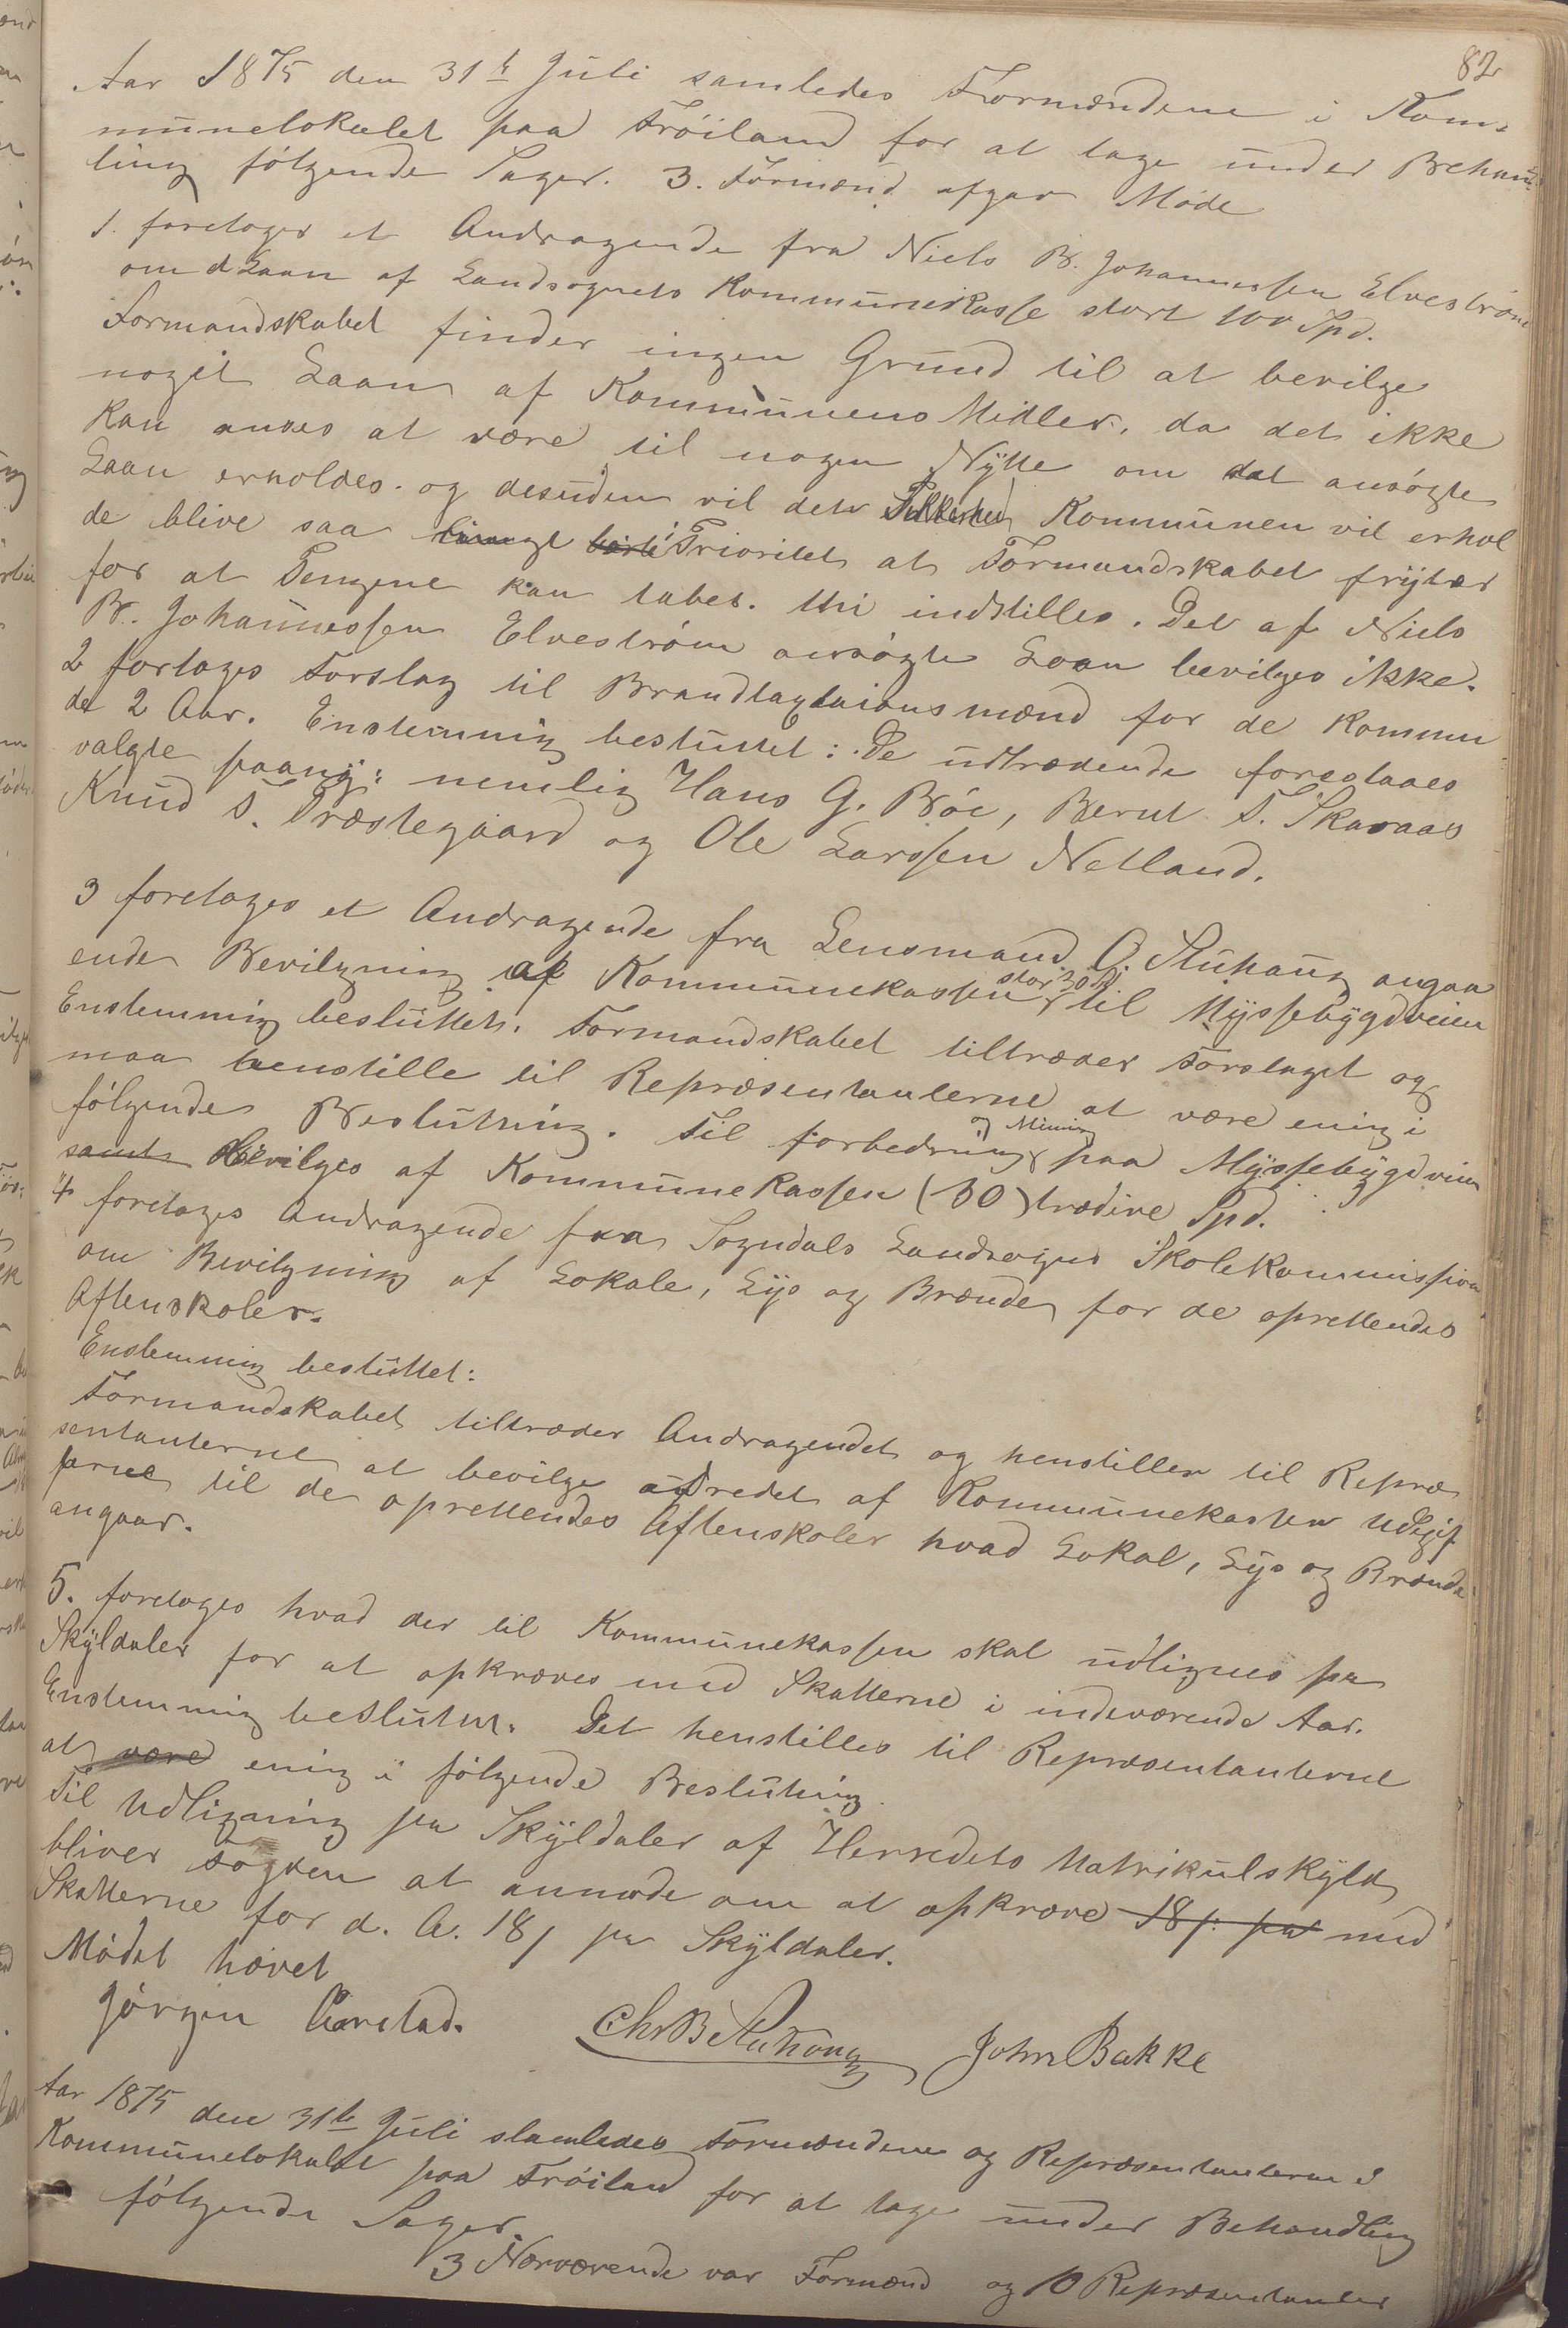 82
Aar 1875 den 31te Juli samledes Formændene i Kom-
munelokalet paa Frøiland for at tage under Behand-
ling følgende Sager. 3. Formænd afgav Møde
1. foretoges et Andragende fra Niels B. Johannessen Elvestrøm
om et Laan af Landsognets Kommunekasse stort 100 Spd.
Formandskabet finder ingen Grund til at bevilge
noget Laan af Kommunens Midler, da det ikke
kan anses at være til nogen Nytte om det ansøgte
Laan erholdes. og desuden vil den Sikkerhed Kommunen vil erhol
de blive saa langt Prioritet at Formandskabet frygter
for at Pengene kan tabes. thi indstilles. Det af Niels
B. Johannessen Elvestrøm ansøgte Laan bevilges ikke.
2 fortoges Forslag til Brandtaxtationsmænd for de kommen
de 2 Aar. Enstemmig besluttet: De udtrædende foreslaaes
valgte paany: nemlig Hans G. Bøe, Bernt T. Skaraas
Knud T. Præstegaard og Ole Larssen Netland.
3 foretoges et Andragende fra Lensmand O. Stuhaug angaa
ende Bevilgning af Kommunekassen stor 30 Spd til Myssebygdveien
Enstemmig besluttet. Formandskabet tiltræder Forslaget og
maa henstille til Repræsentanterne at være enig i
følgende Beslutning. Til forbedring og Minering paa Myssebygdveien
samt bevilges af Kommunekassen (30) trædive Spd.
4 foretoges Andragende fra Sogndals Landsogns Skolekommission
om Bevilgning af Lokale, Lys og Brænde for de oprettendes
Aftenskoler.
Enstemmig besluttet:
Formandskabet tiltræder Andragendet og henstiller til Repræ
sentanterne at bevilge udredet af Kommunekassen Udgif
terne til de oprettendes Aftenskoler hvad Lokal, Lys og Brænde
angaar.
5. foretoges hvad der til Kommunekassen skal udlignes pr
Skyldaler for at opkræves med Skatterne i indeværende Aar.
Enstemmig beslutter. Det henstilles til Repræsentanterne
at være enig i følgende Beslutning.
Til Udligning pr Skyldaler af Herredets Matrikulskyld
bliver Fogden at anmode om at opkræve 18 /: pr med
Skatterne for d. A. 18 / pr Skyldaler.
Mødet hævet
Jørgen Aarstad. Chr B Stuhoug John Bakke
Aar 1875 den 31te Juli slamledes Formændene og Repræsentanterne i
Kommunelokalet paa Frøiland for at tage under Behandling
følgende Sager.
3 Nærværende var Formænd og 10 Repræsentanter